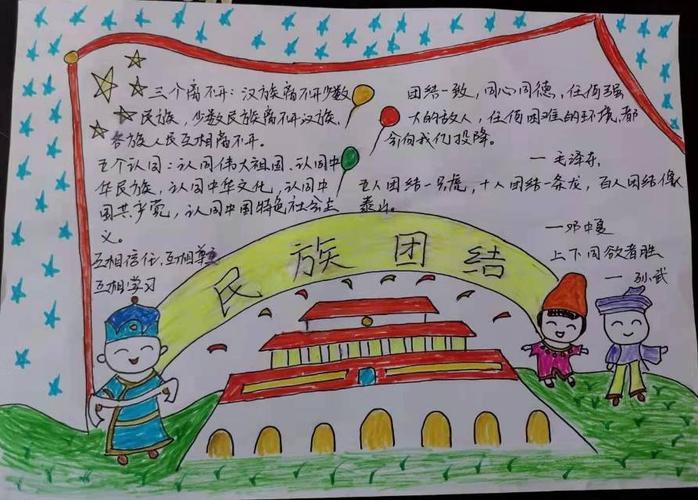 三个离不开:汉族离不开少数
民族,少数民族离不开汉族、
各族人民互相离不开。
五个认同:认同伟大祖国、认同中
华民族,认同中华文化,认同中
国共产党,认同中国特色社会主
义。
互相信任、互相尊重
互相学习
团结一致,同心同德,任何强
大的敌人,任何困难的环境,都
会向我们投降。
—毛泽东
五人团结一只虎,十人团结一条龙,百人团结像
泰山。
—邓中夏
上下同欲者胜
—孙武
民族团结